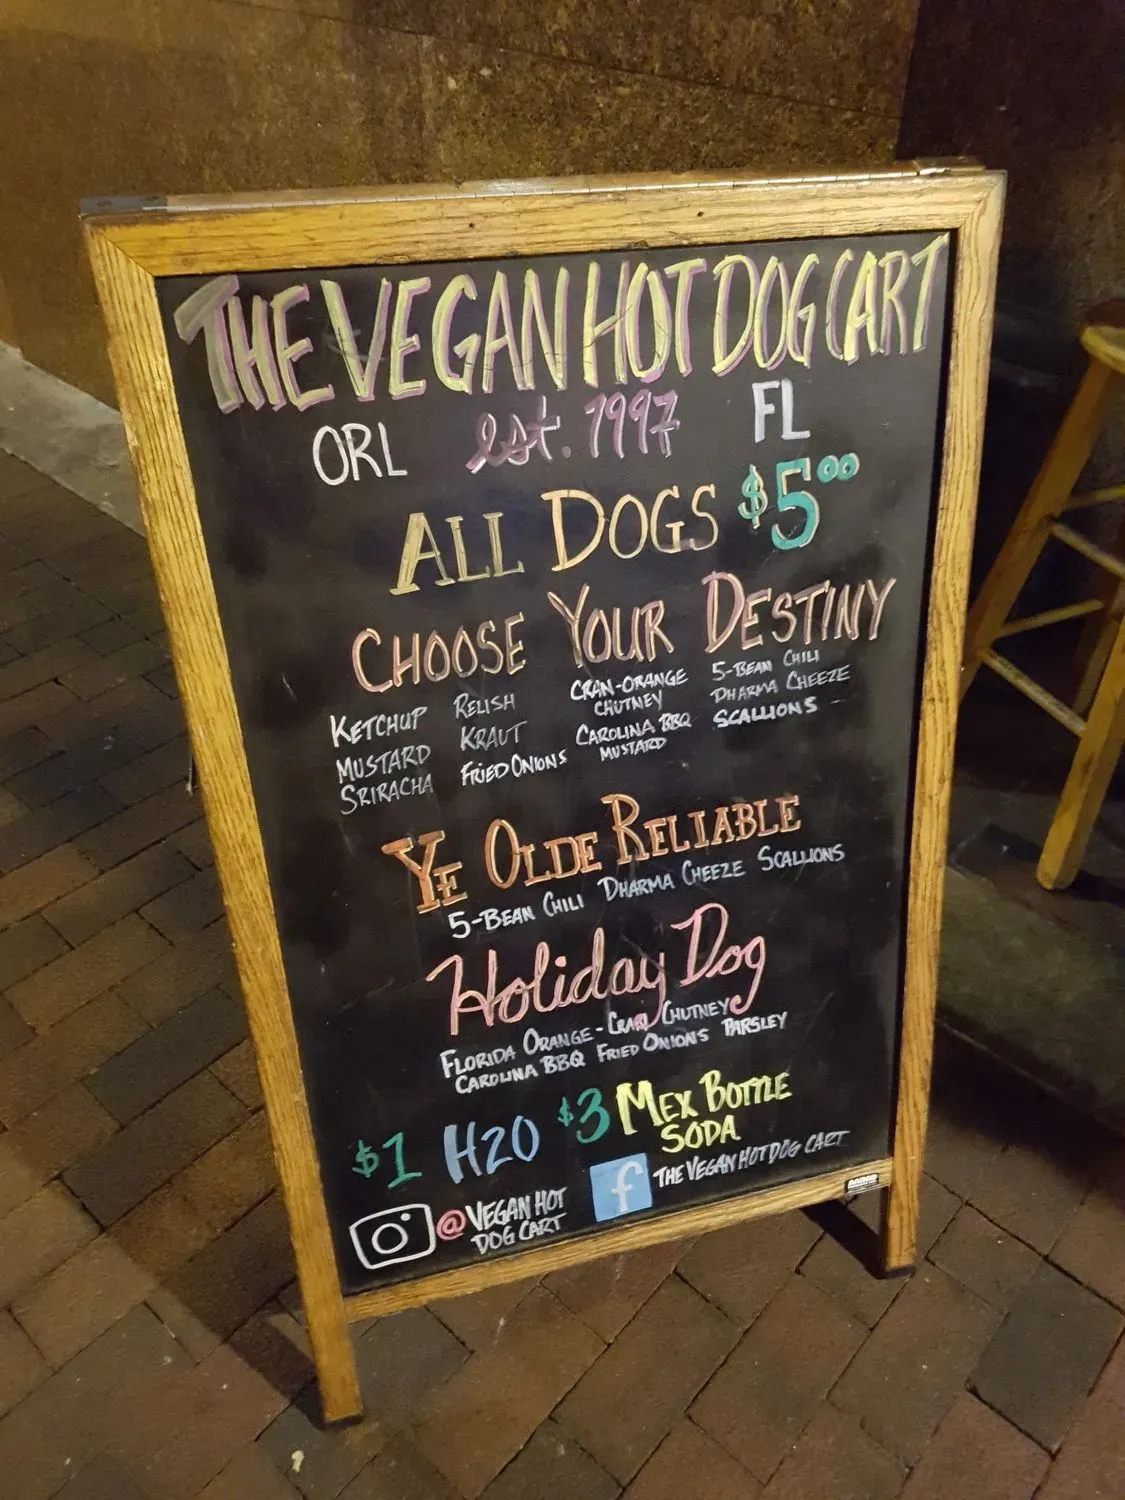 THE VEGAN HOT DOG CART
ORL est. 1997 FL
ALL DOGS $5.00
CHOOSE YOUR DESTINY
KETCHUP
MUSTARD
SRIRACHA
RELISH
KRAUT
FRIED ONIONS
CRAN-ORANGE
CHUTNEY
CAROLINA BBQ
MUSTARD
5-BEAN CHILI
DHARMA CHEEZE
SCALLIONS
YE OLDE RELIABLE
5-BEAN CHILI DHARMA CHEEZE SCALLIONS
Holiday Dog
FLORIDA ORANGE-CRAN CHUTNEY
CAROLINA BBQ FRIED ONIONS PARSLEY
$1 H2O $3 MEX BOTTLE
SODA
@VEGAN HOT
DOG CART
f THE VEGAN HOT DOG CART